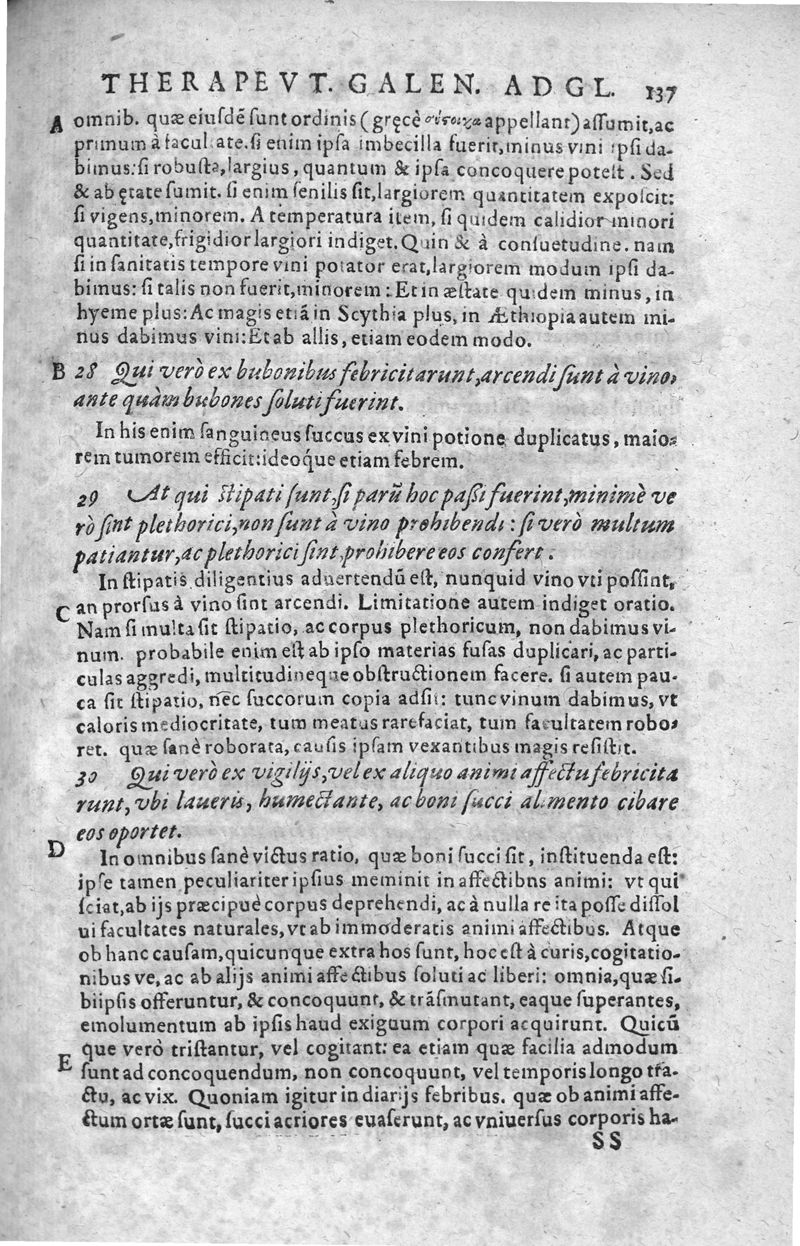 THERAPEVT. GALEN. AD GL. 137
A omnib. quæ eiuſdẽ ſunt ordinis (gręcè σύστοιχα appellant) aſſumit, ac
primum à facultate. ſi enim ipſa imbecilla fuerit, minus vini ipſi da-
bimus: ſi robuſta, largius, quantum & ipſa concoquere poteſt. Sed
& ab ętate ſumit. ſi enim ſenilis ſit, largiorem quantitatem expoſcit:
ſi vigens, minorem. A temperatura item, ſi quidem calidior minori
quantitate, frigidior largiori indiget. Quin & à conſuetudine. nam
ſi in ſanitatis tempore vini potator erat, largiorem modum ipſi da-
bimus: ſi talis non fuerit, minorem: Et in æſtate quidem minus, in
hyeme plus: Ac magis etiã in Scythia plus, in Æthiopia autem mi-
nus dabimus vini: Et ab allis, etiam eodem modo.
B 28 Qui verò ex bubonibus febricitarunt, arcendi ſunt à vino,
ante quàm bubones ſoluti fuerint.
In his enim ſanguineus ſuccus ex vini potione duplicatus, maio-
rem tumorem efficit: ideoq́ue etiam febrem.
29 At qui ſtipati ſunt, ſi parũ hoc paßi fuerint, minimè ve
rò ſint plethorici, non ſunt à vino prohibendi: ſi verò multum
patiantur, ac plethorici ſint, prohibere eos confert.
In ſtipatis diligentius aduertendũ eſt, nunquid vino vti poſſint,
C an prorſus à vino ſint arcendi. Limitatione autem indiget oratio.
Nam ſi multa ſit ſtipatio, ac corpus plethoricum, non dabimus vi-
num. probabile enim eſt ab ipſo materias fuſas duplicari, ac parti-
culas aggredi, multitudineque obſtructionem facere. ſi autem pau-
ca ſit ſtipatio, nec ſuccorum copia adſit: tunc vinum dabimus, vt
caloris mediocritate, tum meatus rarefaciat, tum facultatem robo-
ret. quæ ſanè roborata, cauſis ipſam vexantibus magis reſiſtit.
30 Qui verò ex vigilijs, vel ex aliquo animi affectu febricita
runt, vbi laueris, humectante, ac boni ſucci alimento cibare
eos oportet.
D In omnibus ſanè victus ratio, quæ boni ſucci ſit, inſtituenda eſt:
ipſe tamen peculiariter ipſius meminit in affectibns animi: vt qui
ſciat, ab ijs præcipuè corpus deprehendi, ac à nulla re ita poſſe diſſol
ui facultates naturales, vt ab immoderatis animi affectibus. Atque
ob hanc cauſam, quicunque extra hos ſunt, hoc eſt à curis, cogitatio-
nibus ve, ac ab alijs animi affectibus ſoluti ac liberi: omnia, quæ ſi-
bi ipſis offeruntur, & concoquunt, & trãſmutant, eaque ſuperantes,
emolumentum ab ipſis haud exiguum corpori acquirunt. Quicũ
que verò triſtantur, vel cogitant: ea etiam quæ facilia admodum
E ſunt ad concoquendum, non concoquunt, vel temporis longo tra-
ctu, ac vix. Quoniam igitur in diarijs febribus. quæ ob animi affe-
ctum ortæ ſunt, ſucci acriores euaſerunt, ac vniuerſus corporis ha-
SS